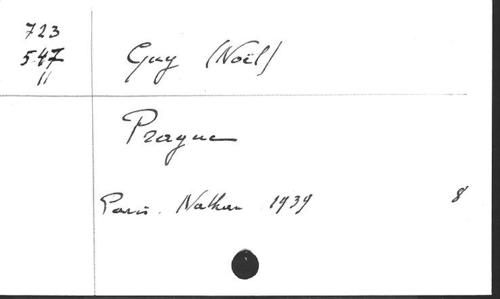 723
547
11
Guy (Noël)
Prague
Paris. Nathan 1939 8